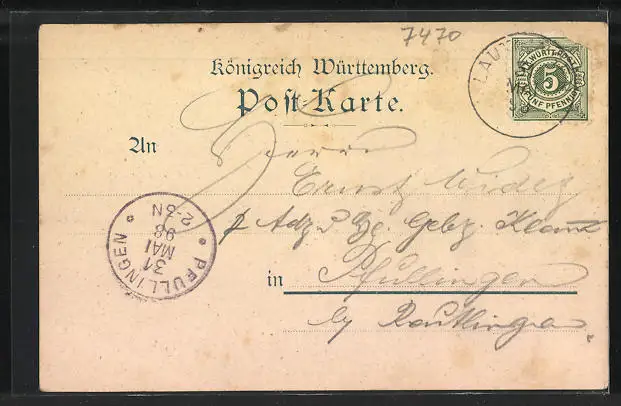 7470
Königreich Württemberg.
Post-Karte.
K. WÜRTTEMBERG
5
FÜNF PFENNIG
LAU
MAI
98
An
Herrn
Ernst
p. Adr. Gebr. Klaus
in Pfullingen
by Reutlingen
PFULLINGEN
31
MAI
98
2-3N